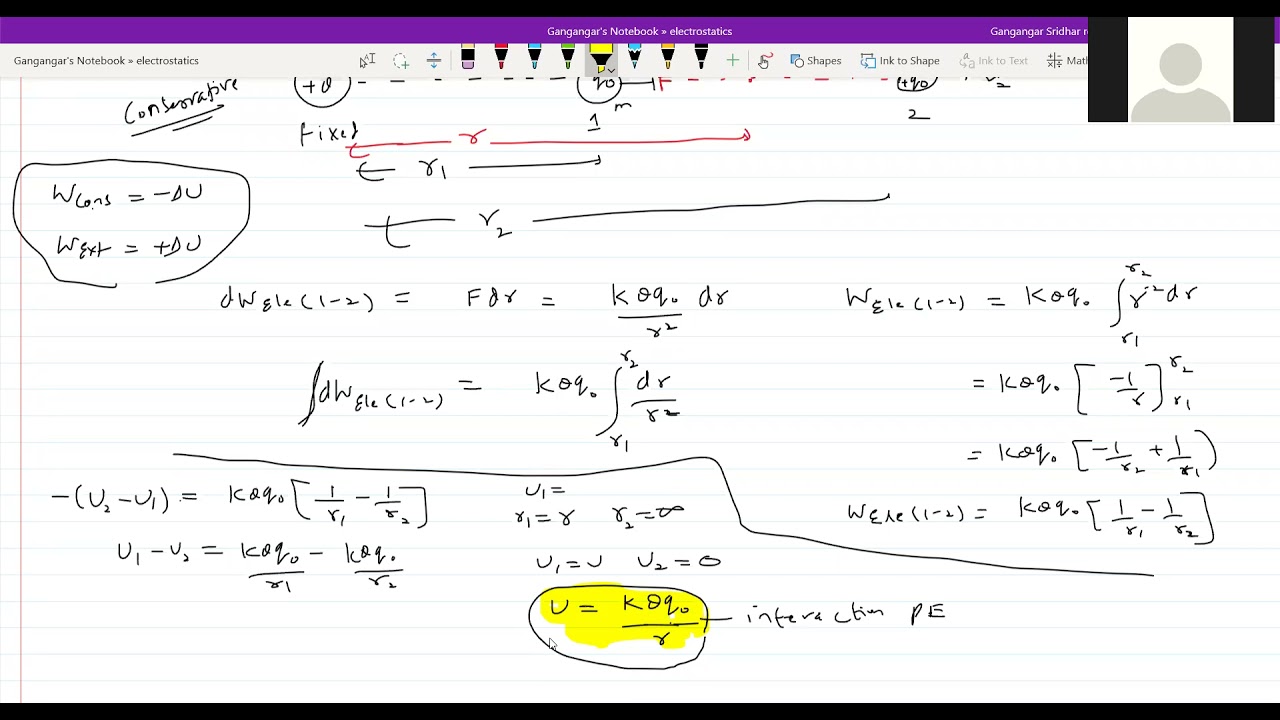 Gangangar's Notebook » electrostatics
Gangangar Sridhar r
Gangangar's Notebook » electrostatics
Shapes
Ink to Shape
Ink to Text
Math
Conservative
+Q
q₀
F
+q₀
m
1
2
Fixed
r
r₁
r₂
W_cons = -ΔU
W_Ext = +ΔU
dW_Ele(1-2) = Fdr = KQq₀/r² dr
∫dW_Ele(1-2) = KQq₀ ∫_{r₁}^{r₂} dr/r²
W_Ele(1-2) = KQq₀ ∫_{r₁}^{r₂} r⁻² dr
= KQq₀ [-1/r]_{r₁}^{r₂}
= KQq₀ [-1/r₂ + 1/r₁)
W_Ele(1-2) = KQq₀ [1/r₁ - 1/r₂]
-(U₂-U₁) = KQq₀ [1/r₁ - 1/r₂]
U₁-U₂ = KQq₀/r₁ - KQq₀/r₂
U₁=
r₁=r r₂=∞
U₁=U U₂=0
U = KQq₀/r — interaction PE